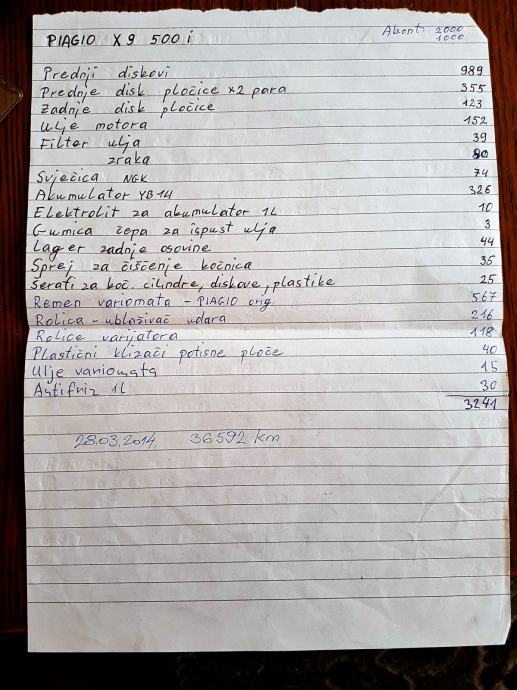 PIAGIO X9 500i
Akont: 2000
1000
Prednji diskovi 989
Prednje disk pločice x2 para 355
Zadnje disk pločice 123
Ulje motora 152
Filter ulja 39
zraka 80
Svječica NGK 74
Akumulator YB14 326
Elektrolit za akumulator 1L 10
Gumica čepa za ispust ulja 3
Lager zadnje osovine 44
Sprej za čišćenje kočnica 35
Šerafi za koč. cilindre, diskove, plastike 25
Remen variomata - PIAGIO orig. 567
Rolica - ublaživač udara 216
Rolice varijatora 118
Plastični klizači potisne ploče 40
Ulje variomata 15
Antifriz 1L 30
3241
28.03.2014. 36592 km